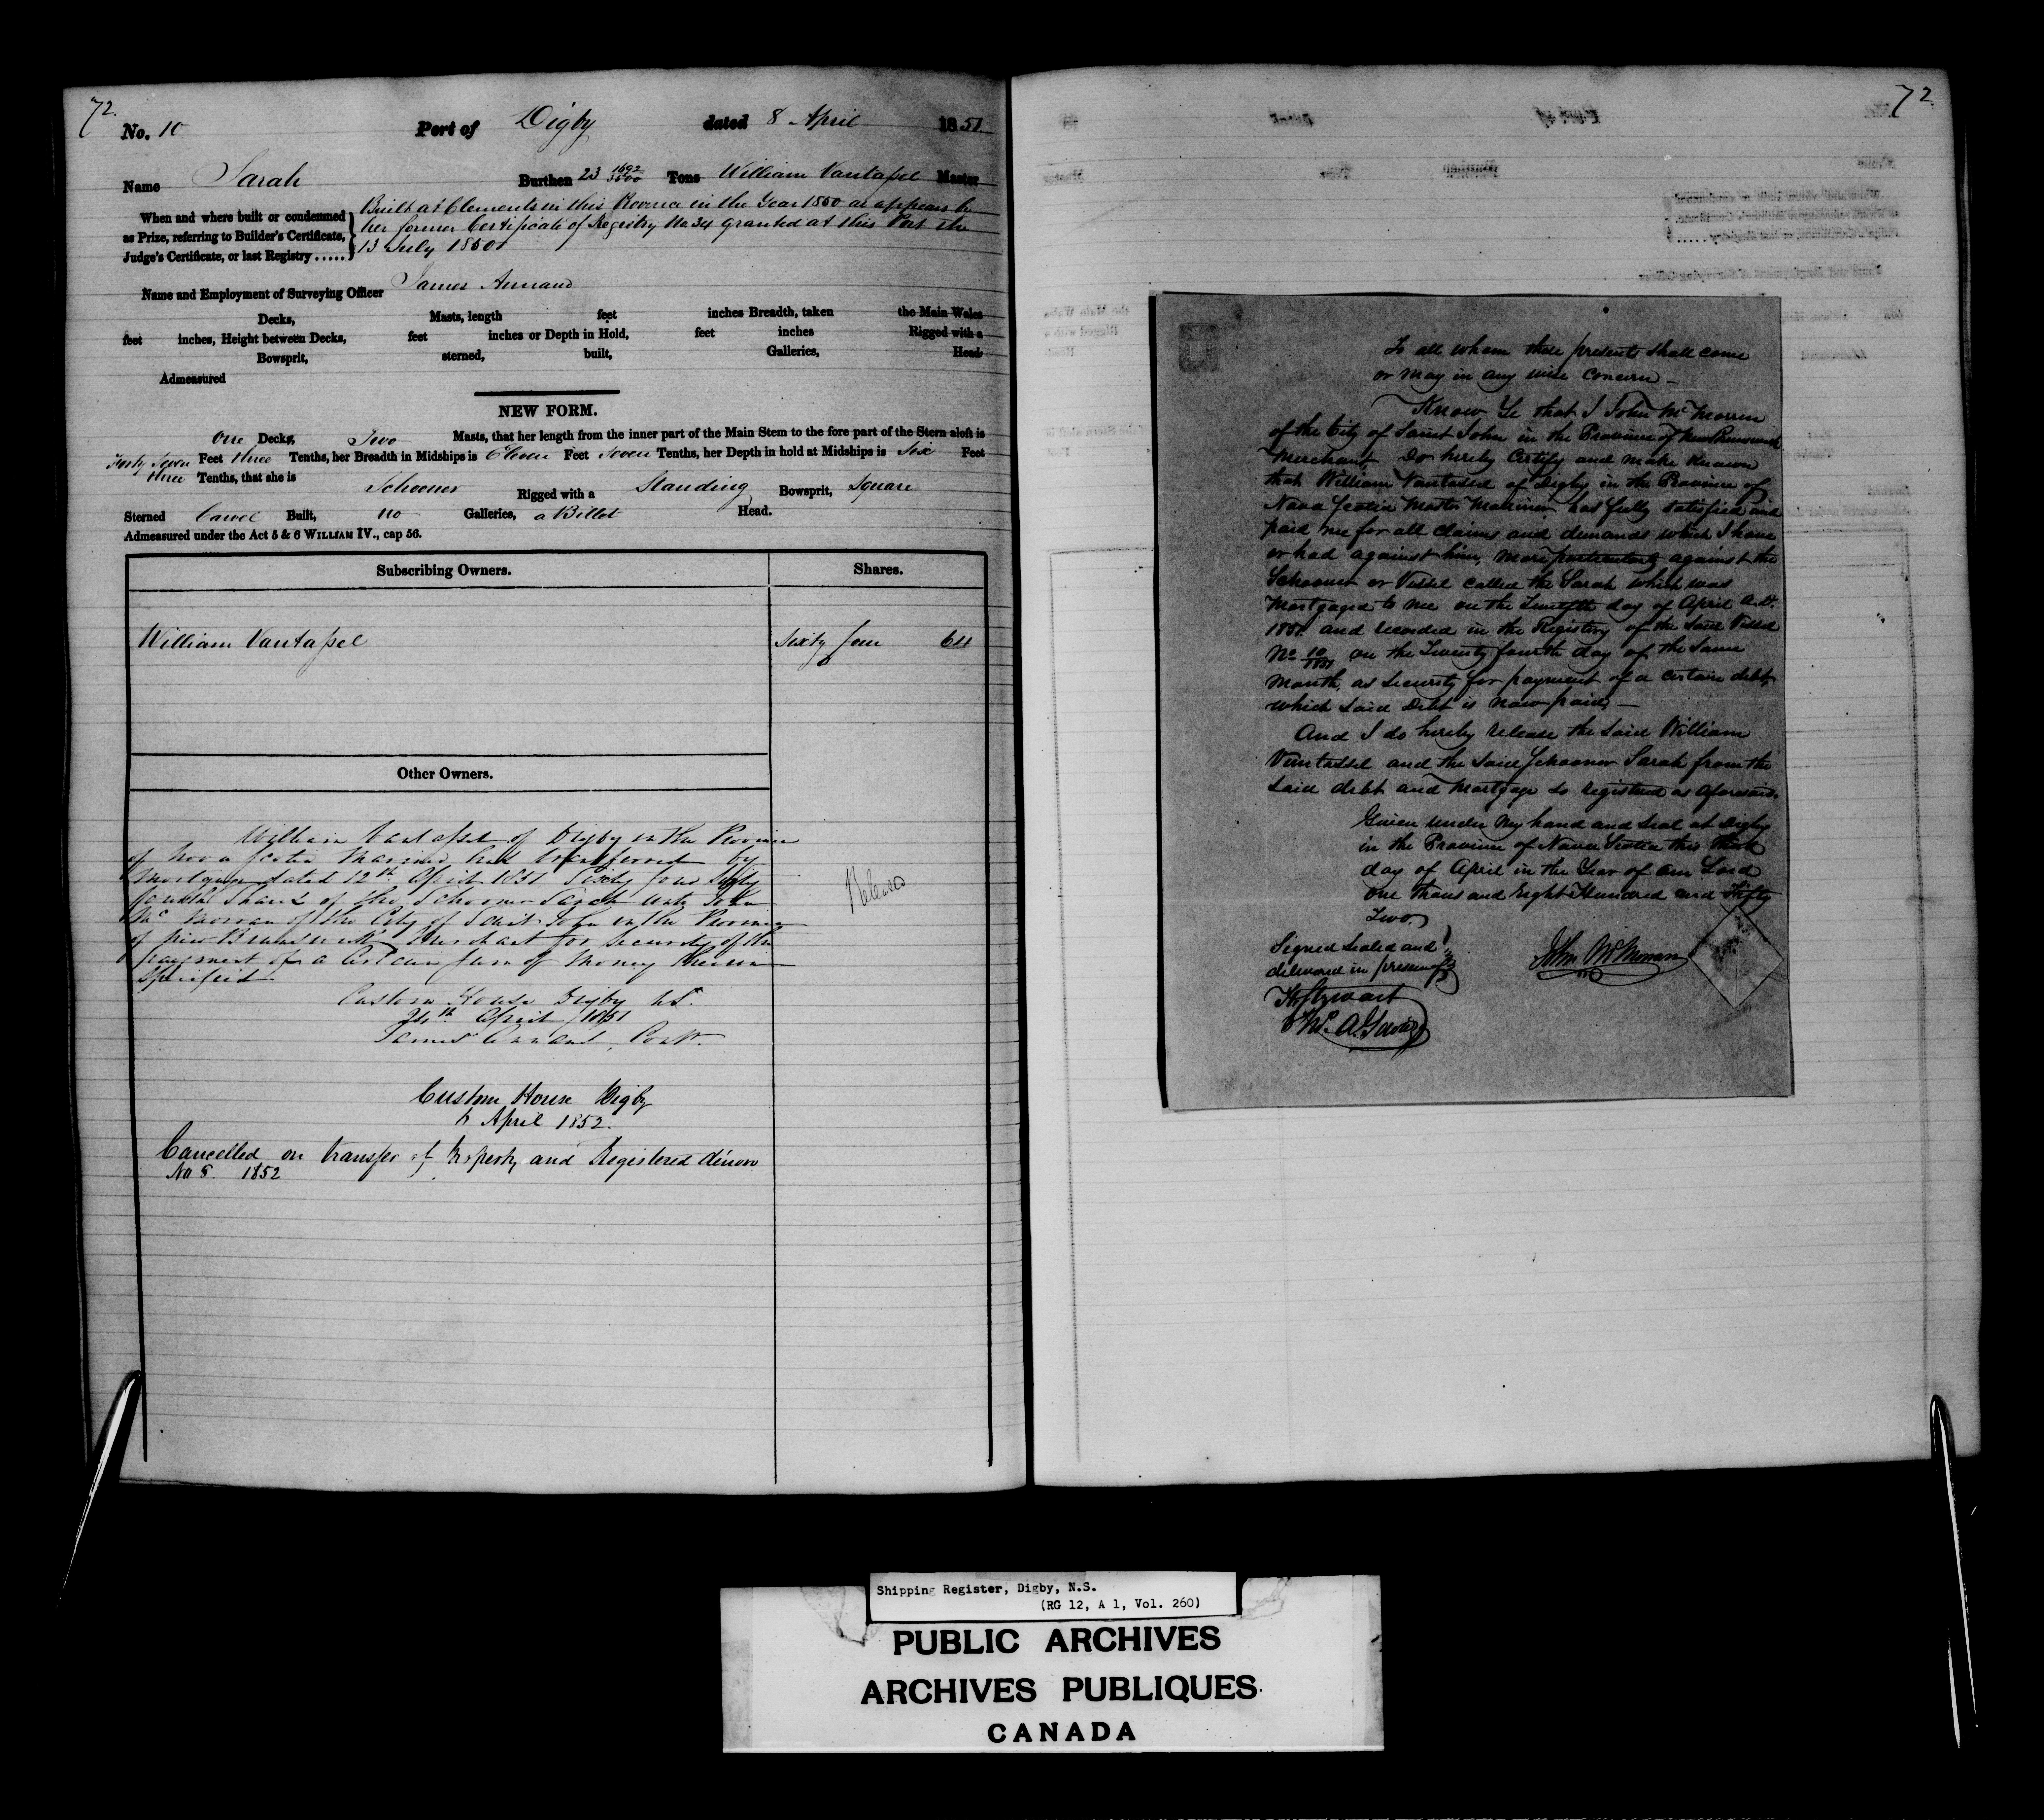 72.
No. 10 Port of Digby dated 8 April 1851
Name Sarah Burthen 23 1692/3500 Tons William Vantassel Master
When and where built or condemned as Prize, referring to Builder's Certificate, Judge's Certificate, or last Registry.....
Built at Clements in this Province in the Year 1850 as appears by
her former Certificate of Registry No 34 granted at this Port the
13 July 1850
Name and Employment of Surveying Officer James Annand
Decks, Masts, length feet inches Breadth, taken the Main Wales
feet inches, Height between Decks, feet inches or Depth in Hold, feet inches Rigged with a
Bowsprit, sterned, built, Galleries, Head.
Admeasured
NEW FORM.
One Decks, Two Masts, that her length from the inner part of the Main Stem to the fore part of the Stern aloft is
Forty Seven Feet three Tenths, her Breadth in Midships is Eleven Feet Seven Tenths, her Depth in hold at Midships is Six Feet
three Tenths, that she is Schooner Rigged with a Standing Bowsprit, Square
Sterned Carvel Built, no Galleries, a Billet Head.
Admeasured under the Act 5 & 6 WILLIAM IV., cap 56.
Subscribing Owners. Shares.
William Vantassel Sixty four 64
Other Owners.
William Vantassel of Digby in the Province
of Nova Scotia Mariner has transferred by
Mortgage dated 12th April 1851 Sixty four Sixty
fourth Shares of the Schooner Sarah unto John
Mc Morran of the City of Saint John in the Province
of New Brunswick Merchant for Security of the
payment of a certain sum of Money therein
Specified.
Released
Custom House Digby NS.
24th April 1851
James Annand, Contr.
Custom House Digby
6 April 1852.
Cancelled on transfer of Property and Registered dénovo
No 8. 1852
72.
To all whom these presents shall come
or may in any wise Concern —
Know Ye that I John Mc Morran
of the City of Saint John in the Province of New Brunswick
Merchant, Do hereby Certify and make Known
that William Vantassel of Digby in the Province of
Nova Scotia Master Mariner has fully satisfied and
paid me for all Claims and demands which I have
or had against him, more particularly against the
Schooner or Vessel called the Sarah which was
Mortgaged to me on the Twelfth day of April A.D.
1851. and recorded in the Registery of the said Vessel
No 10/1851 on the Twenty fourth day of the Same
Month, as security for payment of a certain debt,
which said Debt is now paid, —
And I do hereby release the said William
Vantassel and the said Schooner Sarah from the
said debt and Mortgage so registered as aforesaid.
Given under my hand and seal at Digby
in the Province of Nova Scotia this
day of April in the Year of our Lord
One Thousand Eight Hundred and Fifty
Two.
Signed Sealed and
delivered in presence of
John McMorran
Stewart
Shipping Register, Digby, N.S.
(RG 12, A 1, Vol. 260)
PUBLIC ARCHIVES
ARCHIVES PUBLIQUES
CANADA